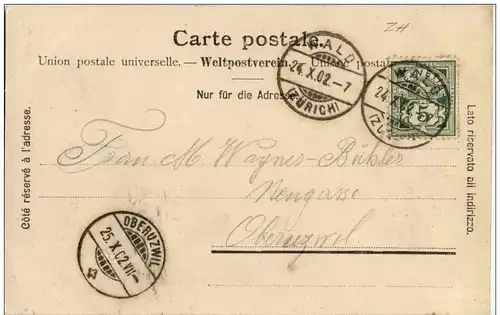 ZH
Carte postale.
Union postale universelle. — Weltpostverein. — Unione postale
Nur für die Adresse
WALD
24.X.02.-7
(ZÜRICH)
WALD
24.X.02
(ZÜRICH)
5
Côté réservé à l'adresse.
Lato riservato all indirizzo.
Frau M. Wagner-Bühler
Neugasse
Oberuzwil
OBERUZWIL
25.X.02.VII-